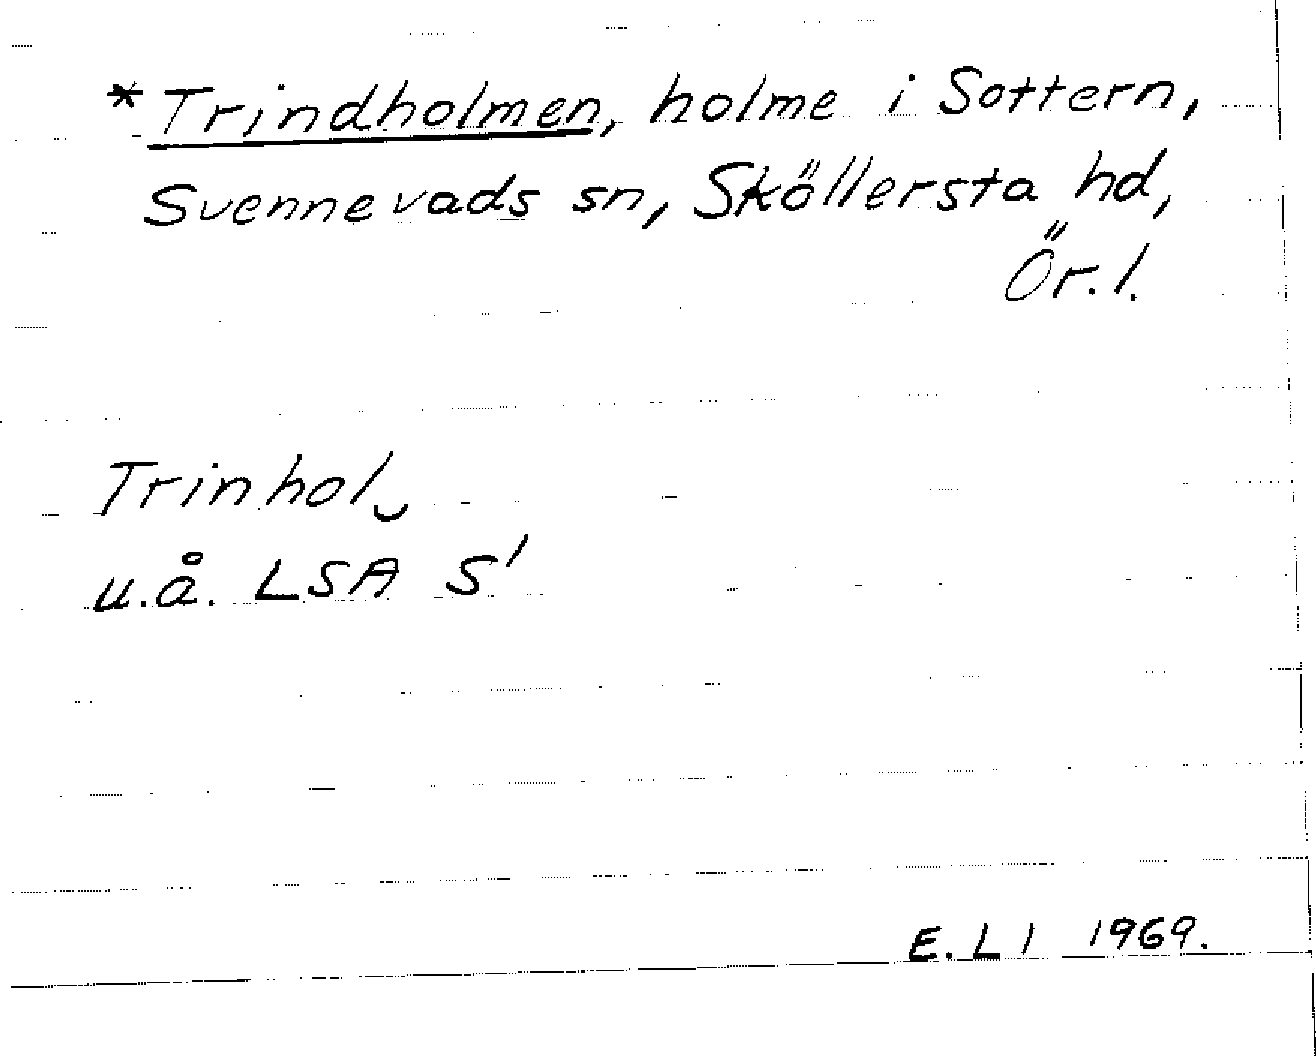 *Trindholmen, holme i Sottern,
Svennevads sn, Sköllersta hd,
Ör.l.
Trinhol‿
u.å. LSA S1
E. L I 1969.